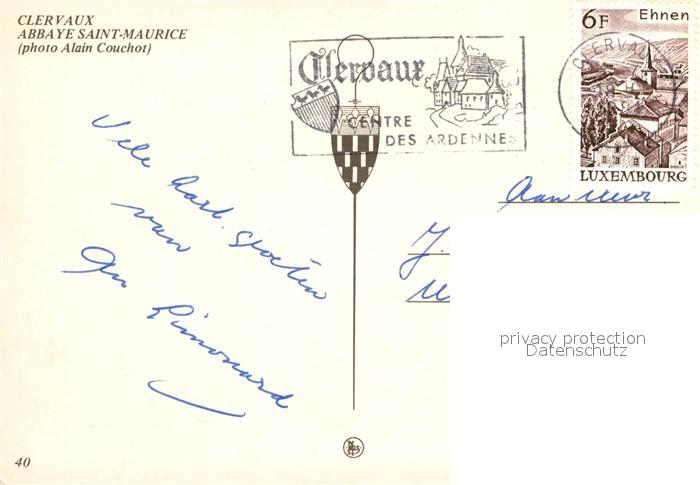 CLERVAUX
ABBAYE SAINT-MAURICE
(photo Alain Couchot)
Clervaux
CENTRE
DES ARDENNES
CLERVAUX
6F Ehnen
LUXEMBOURG
Vele hart. groeten
van
An
Aan
J.
privacy protection
Datenschutz
40